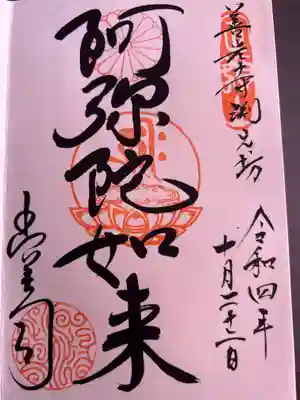 善光寺淵之坊
令和四年
十月二十二日
阿弥陀如来